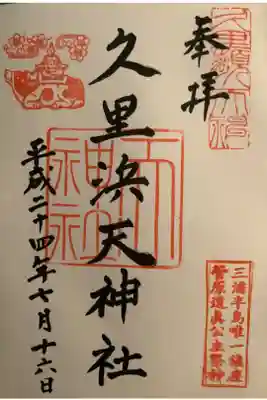 奉拝
久里浜天神社
平成二十四年七月十六日
三浦半島唯一鎮座
菅原道真公主祭神